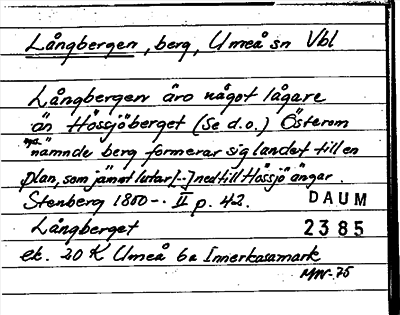 Långbergen, berg, Umeå sn Vbl
Långbergen äro något lägare
än Hössjöberget (Se d.o.) Österom
nämnde berg formerar sig landet till en
plan, som jämnt lutar [--] ned till Hössjö ängar.
Stenberg 1800-. II p. 42.
DAUM
Långberget
2385
ek. 20 K Umeå 6a Innerkasamark
MW-75